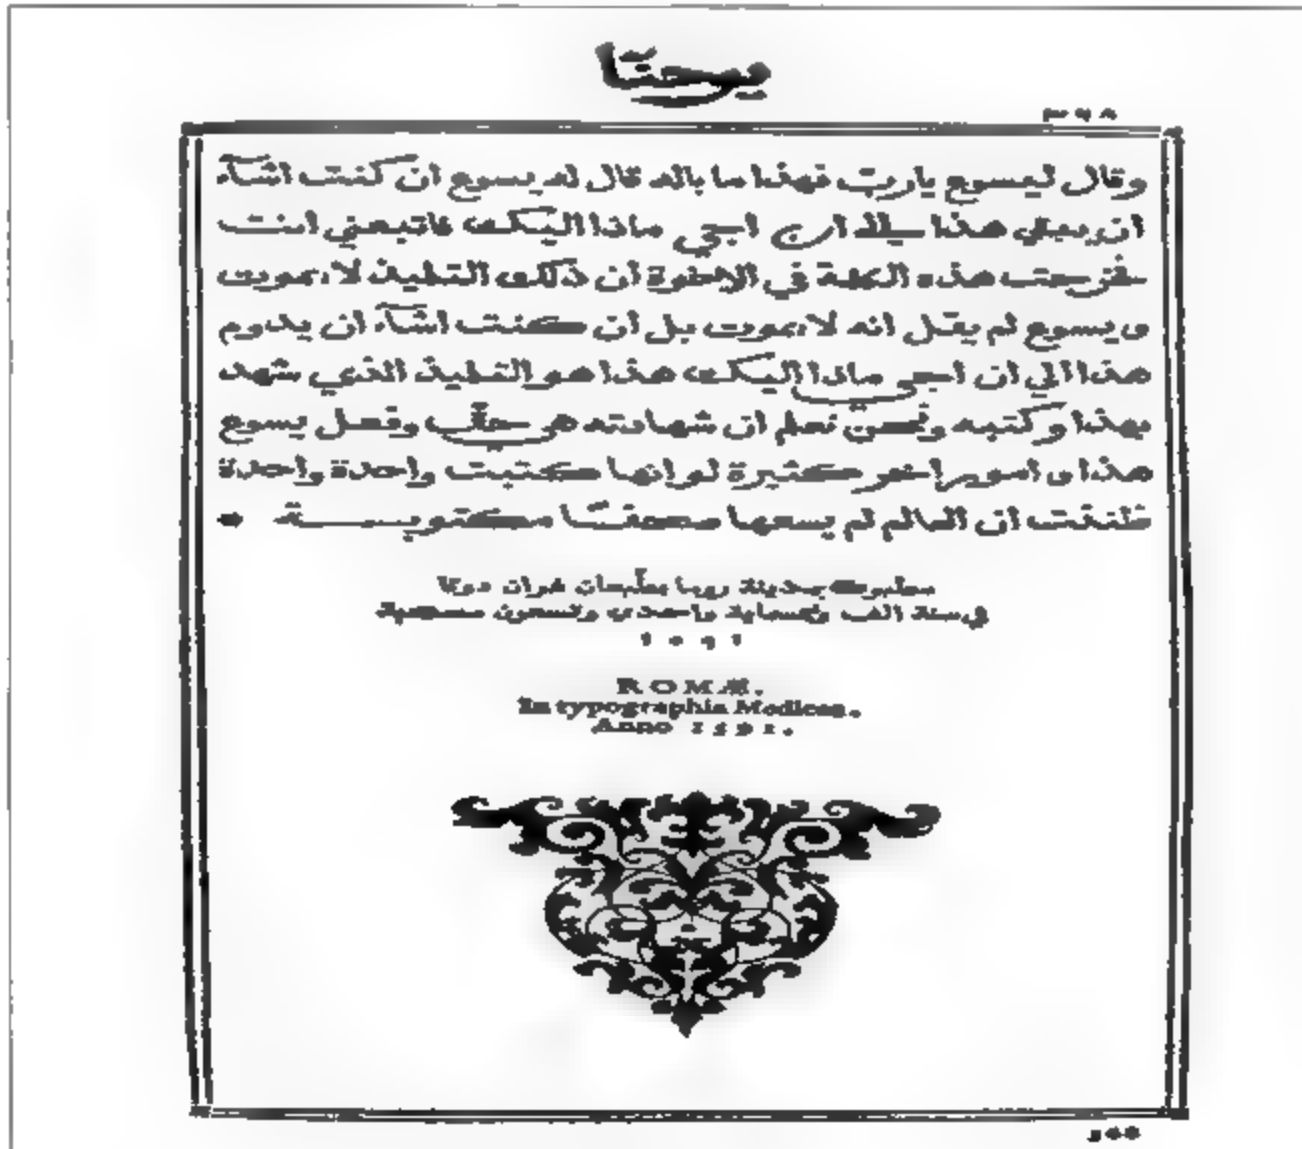 يوحنّا
٣٩٨
وقال ليسوع يارب فهذا ما باله قال له يسوع ان كنت اشآء
ان يبقي هذا الي ان اجي ماذا اليك فاتبعني انت
فخرجت هذه الكلمة في الاخوة ان ذلك التلميذ لا يموت
ويسوع لم يقل انه لا يموت بل ان كنت اشآء ان يدوم
هذا الي ان اجي ماذا اليك هذا هو التلميذ الذي شهد
بهذا وكتبه ونحن نعلم ان شهادته هي حق وفعل يسوع
هذا وامور اخر كثيرة لو انها كتبت واحدة واحدة
لظننت ان العالم لم يسعها صحفًا مكتوبـــة
بمدينة
في سنة الف وخمساية واحدي وتسعون مسيحية
١٥٩١
ROMÆ.
In typographia Medicea.
Anno 1591.